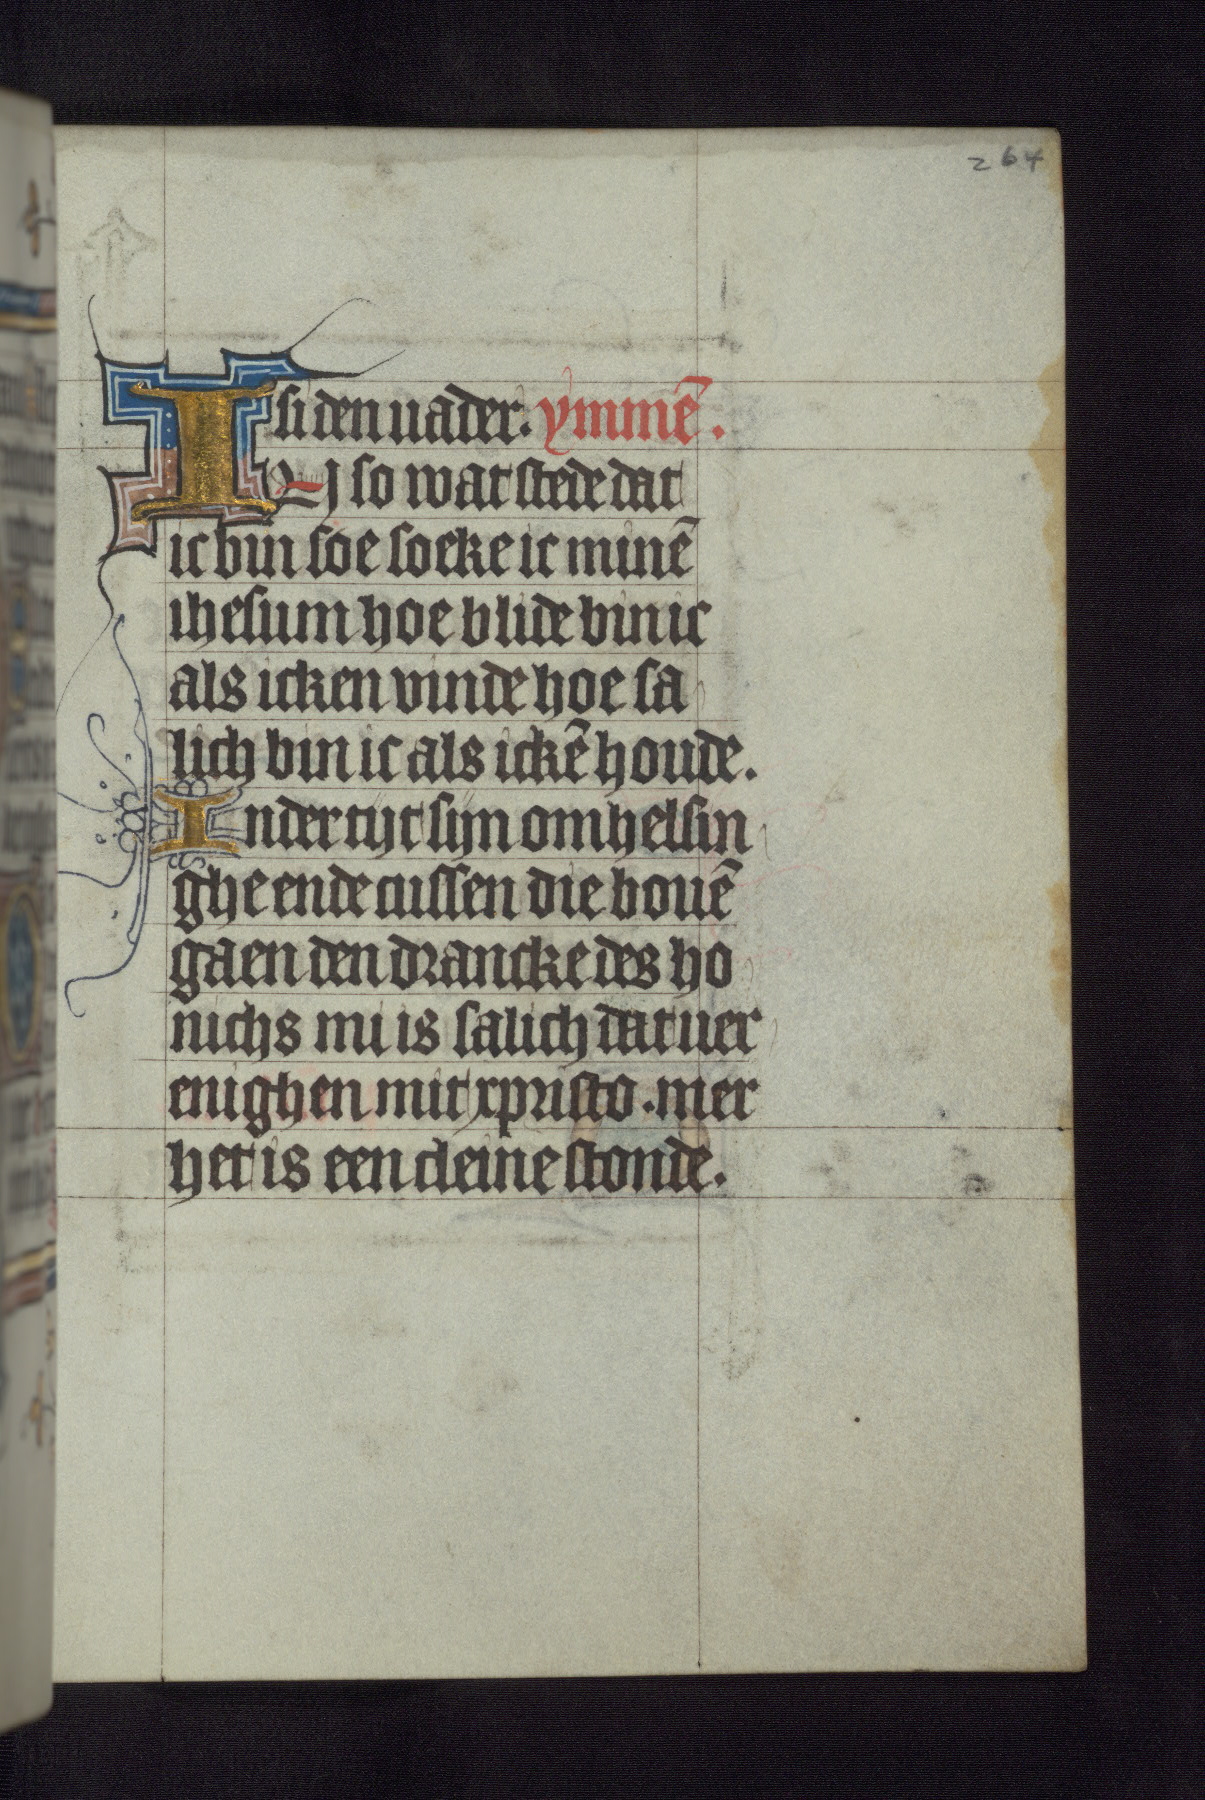 264
si den uader. ymmē.
IN so wat stede dat
ic bin soe soeke ic minē
ihesum hoe blide bin ic
als icken vinde hoe sa
lich bin ic als ickē houde.
In der tijt sijn omhelsin
ghe ende cussen die bouē
gaen den drancke des ho
nichs mi is salich dat uer
enighen mit xpristo. mer
het is een cleine stonde.